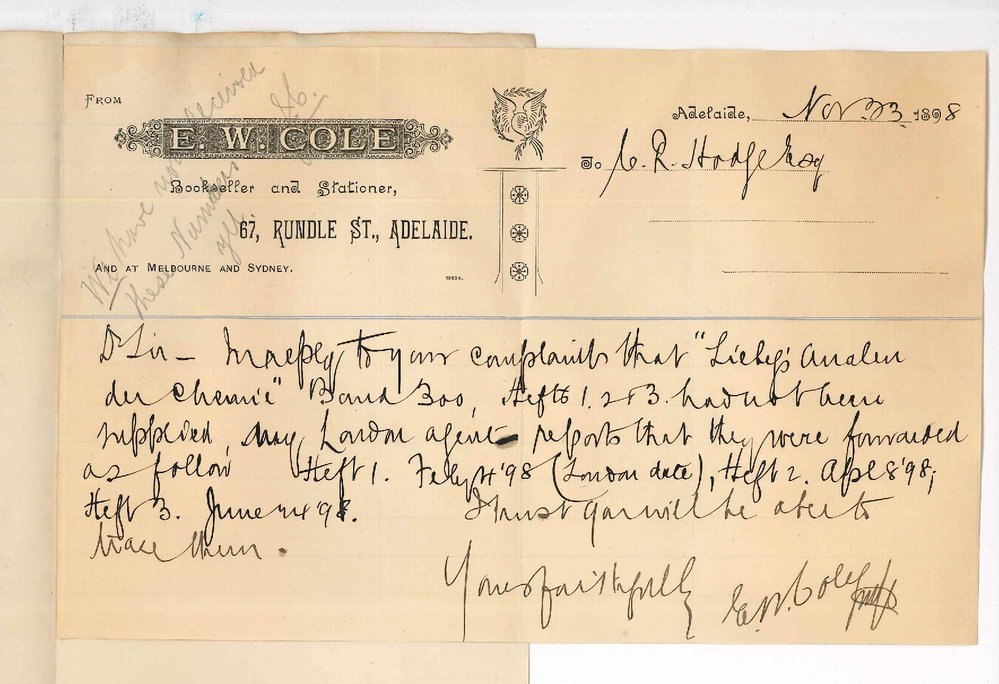 We have not received
these Numbers
yet.
FROM
E. W. COLE
Bookseller and Stationer,
67, RUNDLE ST., ADELAIDE.
AND AT MELBOURNE AND SYDNEY.
Adelaide, Nov. 23. 1898
To C. R. Hodge Esq
Dr Sir — In reply to your complaint that "Liebigs Analen
der Chemie" Band 300, Hefts 1. 2 & 3. had not been
supplied, my London agent reports that they were forwarded
as follow Heft 1. Feby 4 '98 (London date), Heft 2. Apl 8 '98;
Heft 3. June '98.
I trust you will be able to
trace them.
Yours faithfully
E. W. Cole